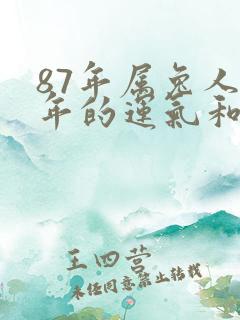 87年属兔人
年的运气和
王四营
未经同意禁止转载